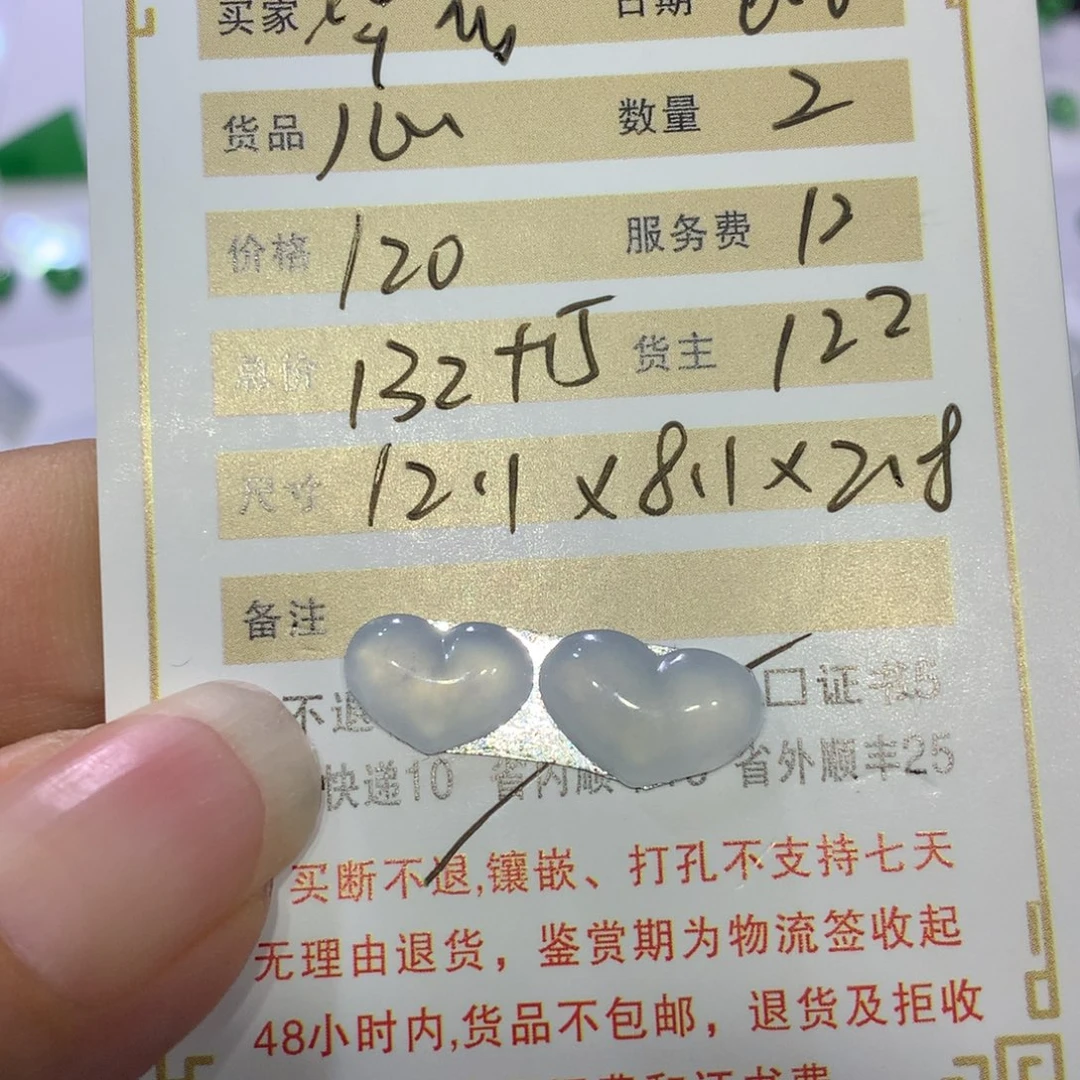 买家 日期
货品 数量 2
价格 120 服务费 12
总价 132+15 货主 122
尺寸 12.1 × 8.1 × 2.8
备注
不退 口证书5
快递10 省内顺 省外顺丰25
买断不退,镶嵌、打孔不支持七天
无理由退货，鉴赏期为物流签收起
48小时内,货品不包邮，退货及拒收